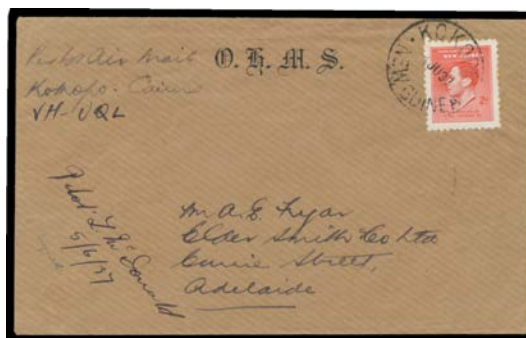 Air Mail
Kokopo - Cairns
VH-UQL
O. H. M. S.
NEW
KOKO
GUINEA
2d
Pilot L McDonald
5/6/37
Mr A.E.
Elder Smith Co Ltd
Currie Street,
Adelaide